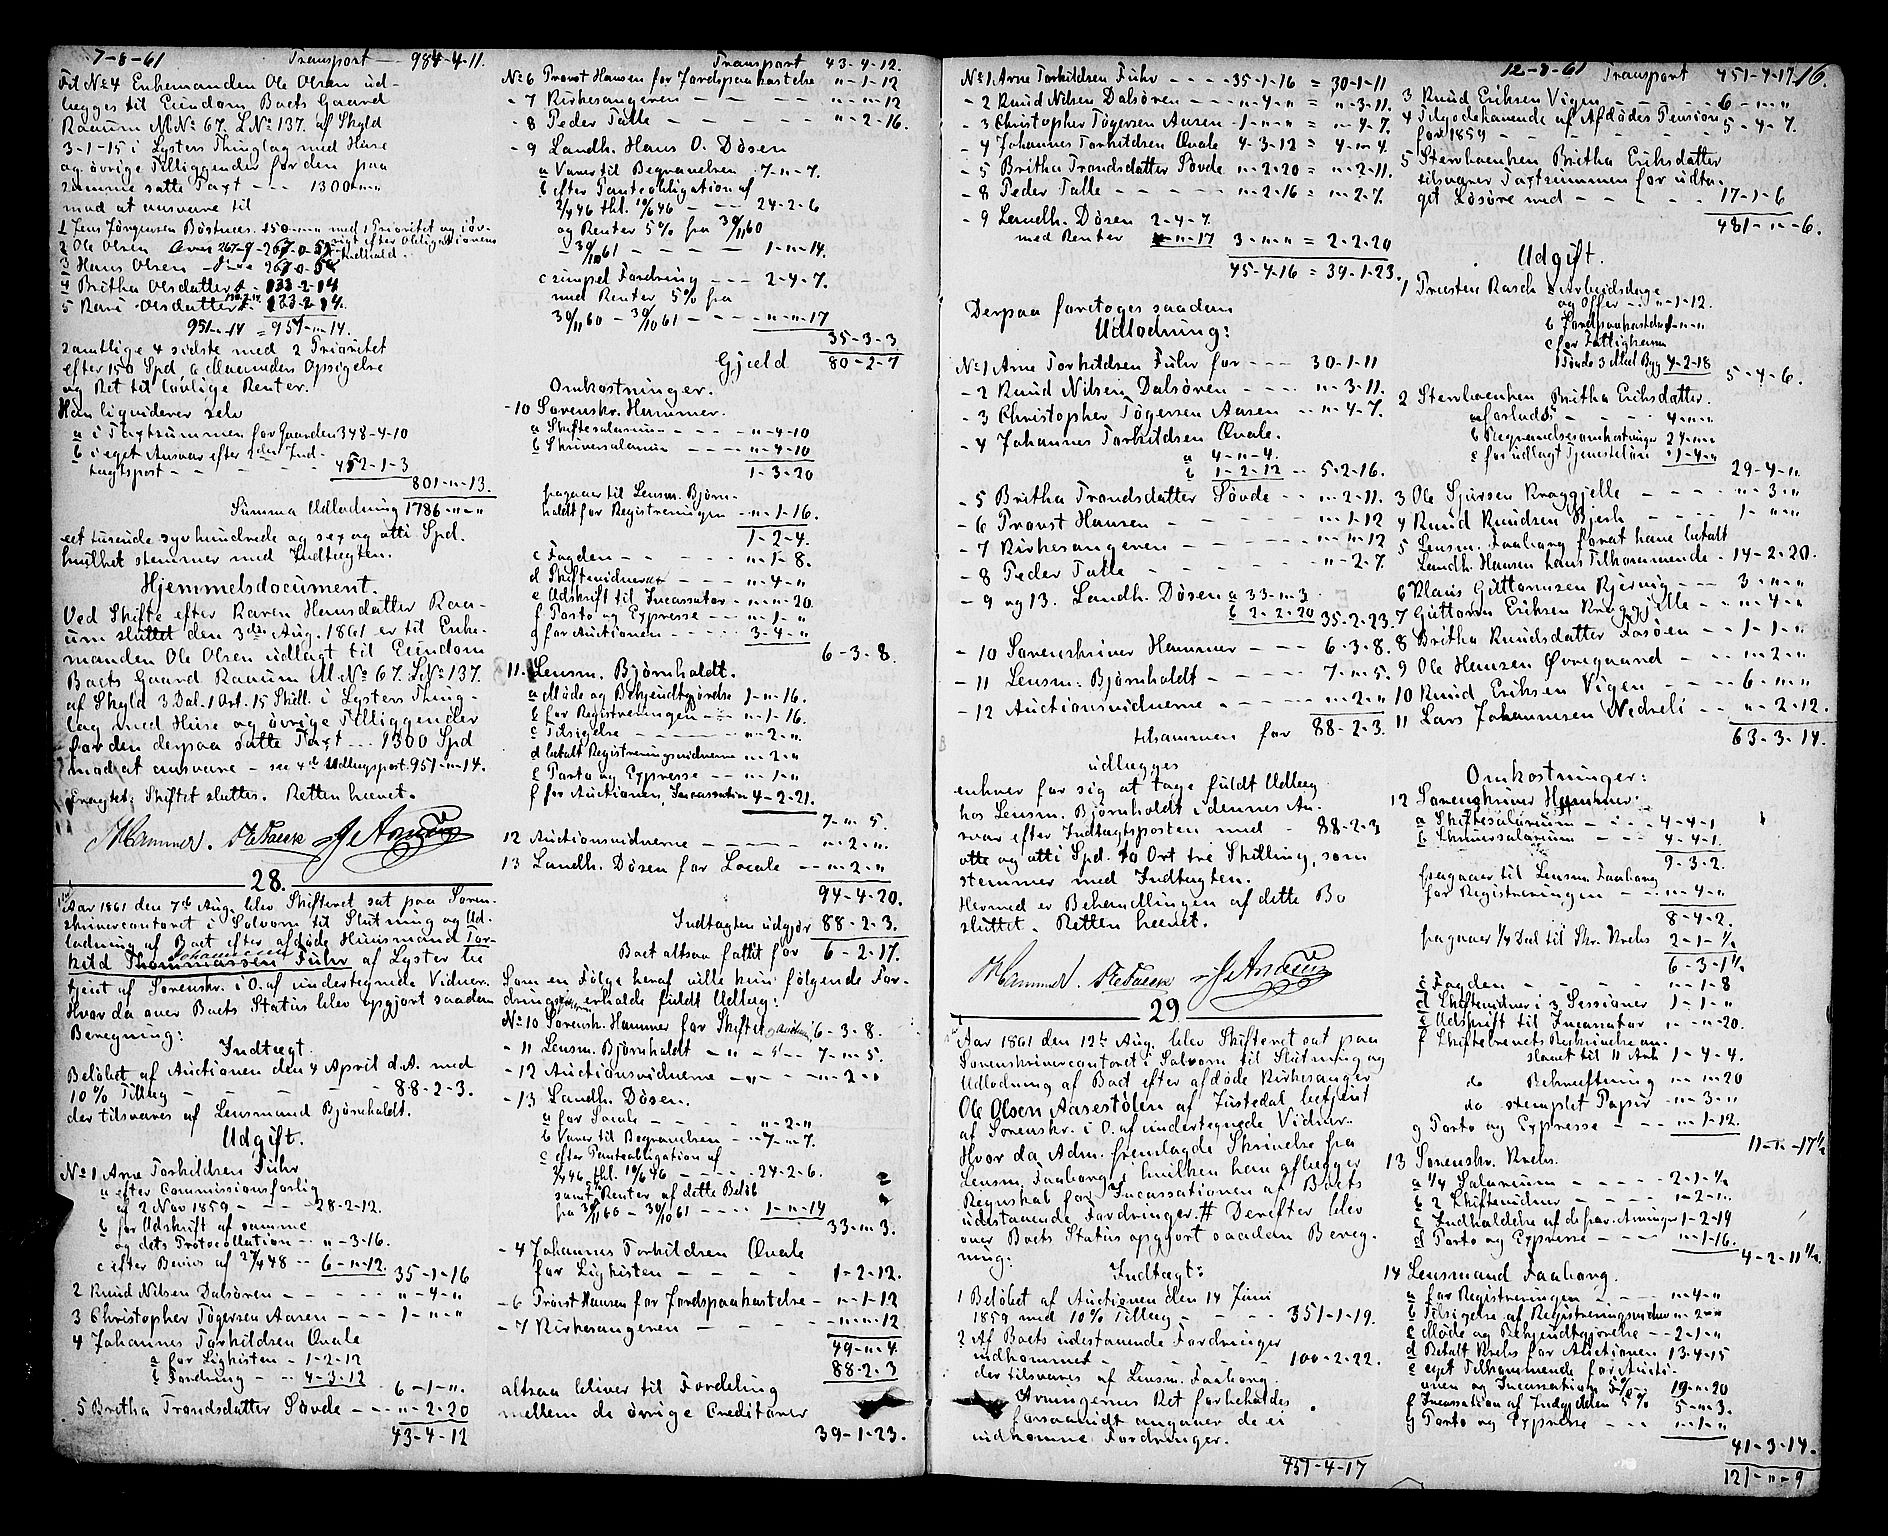 7-8-61 Transport — 984-4-11.
Fil No 4 Enkemanden Ole Olsen ud-
lægges til Eiendom Boets Gaard
Raaum M.No 67. L.No 137. af Skyld
3-1-15 i Lysters Thinglag med Huse
og øvrige Tilliggender for den paa
samme satte Taxt --- 1300-"-"
mod at ansvare til
2 Ole Olsen
3 Hans Olsen
4 Britha Olsdatter 133-2-14
5 Kari Olsdatter 133-2-14.
951-"-14 = 951-"-14.
samtlige 4 sidste med 2 Prioritet
efter 150 Spd. 6 Maaneders Opsigelse
og Ret til lovlige Renter.
Han liqviderer selv
a i Taxtsummen for Gaarden 348-4-10
b i eget Ansvar efter 2den Ind-
tægtspost - - - - 452-1-3
801-"-13.
Summa Udlodning 1786-"-"
eet tusende syvhundrede og sex og otti Spd.
hvilket stemmer med Indtægten.
Hjemmelsdocument.
Ved Skifte efter Karen Hansdatter Raa-
um sluttet den 3die Aug. 1861 er til Enke-
manden Ole Olsen udlagt til Eiendom
Boets Gaard Raaum M.No 67. L.No 137.
af Skyld 3 Dal. 1 Ort. 15 Skill. i Lysters Thing-
lag med Huse og øvrige Tilliggender
for den derpaa satte Taxt --- 1300 Spd
mod at ansvare - see 4de Udlægspost. 951-"-14.
Eragtet: Skiftet sluttes. Retten hævet.
Hammer.
28.
Aar 1861 den 7de Aug. blev Skifteret sat paa Soren-
skrivercontoret i Solvorn til Slutning og Ud-
lodning af Boet efter afdøde Huusmand Tor-
kild Thommassen Johannessen Fuhr af Lyster be
tjent af Sorenskr. i O. af undertegnede Vidner.
Hvor da over Boets Status blev opgjort saadan
Beregning:
Indtægt.
Beløbet af Auctionen den 4 April d.A. med
10 % Tillæg - - - - - 88-2-3.
der tilsvares af Lensmand Bjørnholdt.
Udgift.
No 1 Arne Torkildsen Fuhr
a efter Commissionsforlig
af 2 Nov 1859 - - - 28-2-12.
b for Udskrift af samme
og dets Protocollation -- "-3-16.
c efter Beviis af 27/4 48 -- 6-"-12. 35-1-16
2 Knud Nilsen Dalsøren - - - - - "-4-"
3 Christopher Tøgersen Aasen - - - 1-"-"
4 Johannes Torkildsen Qvale
a for Ligkisten - 1-2-12
b Fordring - - 4-3-12
6-1-".
5 Britha Trondsdatter Søvde - - - "-2-20
43-4-12
Transport 43-4-12.
No 6 Provst Hansen for Jordspaakastelse "-1-12
- 7 Kirkesangeren - - - - - "-"-12
- 8 Peder Talle - - - - - "-2-16.
- 9 Landh. Hans O. Døsen
a Varer til Begravelsen 7-"-7.
b efter Panteobligation af
2/4 46 thl. 10/6 46 - - - 24-2-6
og Renter 5 % fra 30/11 60
- 30/10 61 - - - - 1-"-14.
c simpel Fordring - - - 2-4-7.
med Renter 5 % fra
30/11 60 - 30/10 61 - - - - "-"-17
35-3-3
Gjæld 80-2-7
Omkostninger.
-10 Sorenskr. Hammer.
a Skiftesalarium - - - - "-4-10
b Skriversalarium - - - - "-4-10
1-3-20
fragaaer til Lensm. Bjørn-
holdt for Registreringen - "-1-16.
1-2-4.
c Fogden - - - - - "-1-8.
d Skiftevidner - - - - "-4-"
e Udskrift til Incassator - "-"-20
f Porto og Expresse - - "-1-"
g for Auctionen - - - - 3-4-"
6-3-8.
11. Lensm. Bjørnholdt.
a Møde og Bekjendtgjørelse 1-"-16.
b for Registreringen - - "-1-16.
c Tilsigelse - - - - "-2-".
d betalt Registreringsvidnerne "-2-"
e Porto og Expresse - - "-1-"
f for Auctionen, Incassation 4-2-21.
7-"-5.
12 Auctionsvidnerne - - - - - "-2-".
13 Landh. Døsen for Locale - - "-2-"
94-4-20.
Indtægten udgjør 88-2-3.
Boet altsaa fattit for 6-2-17.
Som en Følge heraf ville kun følgende For-
dringshavere erholde fuldt Udlæg:
No 10 Sorenskr. Hammer for Skiftet 6-3-8.
- 11 Lensm. Bjørnholdt - " - - 7-"-5.
- 12 Auctionsvidnerne - " - - - "-2-"
- 13 Landh. Døsen.
a for Locale - - - - - "-2-"
b Varer til Begravelsen - - 7-"-7.
c efter Panteobligation af
2/4 46 thl. 10/6 46 - - - 24-2-6.
samt Renter af dette Beløb
fra 30/11 60 - 30/10 61 - - - - 1-"-14
33-"-3.
- 4 Johannes Torkildsen Qvale
for Ligkisten - - - - 1-2-12.
- 6 Provst Hansen for Jordspaakastelse - "-1-12
- 7 Kirkesangeren - - - - - "-"-12
49-"-4.
88-2-3
altsaa bliver til Fordeling
mellem de øvrige Creditorer
39-1-23.
No 1. Arne Torkildsen Fuhr - - - - 35-1-16 = 30-1-11
- 2 Knud Nilsen Dalsøren - - - "-4-" = "-3-11.
- 3 Christopher Tøgersen Aasen - 1-"-" = "-4-7.
- 4 Johannes Torkildsen Qvale 4-3-12 = 4-"-4.
- 5 Britha Trondsdatter Søvde "-2-20 = "-2-11.
- 8 Peder Talle - - - - - "-2-16 = "-2-7.
- 9 Landh. Døsen 2-4-7.
med Renter "-"-17 3-"-" = 2-2-20
45-4-16 = 39-1-23.
Derpaa foretoges saadan
Udlodning:
No 1 Arne Torkildsen Fuhr for - - - 30-1-11
- 2 Knud Nilsen Dalsøren - - - - "-3-11.
- 3 Christopher Tøgersen Aasen - - "-4-7.
- 4 Johannes Torkildsen Qvale.
a 4-"-4.
b 1-2-12 -- 5-2-16.
- 5 Britha Trondsdatter Søvde - - "-2-11.
- 6 Provst Hansen - - - - - "-1-12
- 7 Kirkesangeren - - - - - "-"-12
- 8 Peder Talle - - - - - - "-2-7.
- 9 og 13. Landh. Døsen a 33-"-3
b 2-2-20 35-2-23.
- 10 Sorenskriver Hammer - - - 6-3-8.
- 11 Lensm. Bjørnholdt - - - - 7-"-5.
- 12 Auctionsvidnerne - - - - - "-2-"
tilsammen for 88-2-3.
udlægges
enhver for sig at tage fuldt Udlæg
hos Lensm. Bjørnholdt i dennes An-
svar efter Indtægtsposten med - 88-2-3
otte og otti Spd. to Ort tre Skilling, som
stemmer med Indtægten.
Hermed er Behandlingen af dette Bo
sluttet. Retten hævet.
Hammer.
29.
Aar 1861 den 12te Aug. blev Skifteret sat paa
Sorenskrivercontoret i Solvorn til Slutning og
Udlodning af Boet efter afdøde Kirkesanger
Ole Olsen Aasestølen af Justedal betjent
af Sorenskr. i O. af undertegnede Vidner.
Hvor da Adm. fremlagde Skrivelse fra
Lensm. Faaborg i hvilken han aflægger
Regnskab for Incassationen af Boets
udestaaende Fordringer. # Derefter blev
over Boets Status opgjort saadan Bereg-
ning:
Indtægt:
1 Beløbet af Auctionen den 14 Juni
1859 med 10 % Tillæg - - - - 351-1-19.
2 Af Boets udestaaende Fordringer
indkommet - - - - - 100-2-22.
der tilsvares af Lensm. Faaborg.
Arvingernes Ret forbeholdes
forsaavidt angaaer de ei
indkomne Fordringer.
451-4-17
12-8-61 Transport 451-4-17 16.
3 Knud Eriksen Vigen - - - - - 6-"-"
4 Tilgodehavende af Afdødes Pension
for 1859 - - - - - - 5-4-7.
5 Stervboenken Britha Eriksdatter
tilsvarer Taxtsummen for udta-
get Løsøre med - - - - - 17-1-6
481-"-6.
Udgift.
1 Presten Rasch a Arbeidsdage
og Offer - - "-1-12.
b Jordpaakastelse 1-"-"
c for Fattigkassen
1 Tønde 3 Mæl Byg 4-2-18
5-4-6.
2 Stervboenken Britha Eriksdatter.
b Begravelsesomkostninger 24-"-"
c for udlagt Tjenesteløn "1-4-"
29-4-".
3 Ole Sjursen Kroggjelle - - - - "-3-"
4 Knud Knudsen Bjerk - - - - 1-"-"
5 Lensm. Faaborg forat have betalt
Landh. Hansen hans Tilkommende - 14-2-20.
6 Klaus Guttormsen Kjervig - - - 3-"-"
7 Guttorm Eriksen Kroggjelle - - "-4-"
8 Britha Knudsdatter Fosøen - - 1-1-"
9 Ole Hansen Øvregaard - - - "-2-"
10 Knud Eriksen Vigen - - - - 6-"-"
11 Lars Johannesen Nedreli - - "-2-12.
63-3-14.
Omkostninger:
12 Sorenskriver Hammer:
a Skiftesalarium - - - - 4-4-1
b Skriversalarium - - - 4-4-1.
9-3-2.
fragaaer til Lensm. Faaborg
for Registreringen - - "-4-"
8-4-2.
fragaaer 1/4 Del til Skr. Krebs 2-1-1/2
6-3-1 1/2
c Fogden - - - - - "-1-8
d Skiftevidner i 3 Sessioner 1-1-"
e Udskrift til Incassator "-"-20.
f Skiftebrevets Beskrivelse an-
slaaet til 11 Ark 1-4-4.
do Bekræftning "-"-20
do stemplet Papir "-3-"
g Porto og Expresse - - - "-1-12.
11-"-17 1/2
13 Sorenskr. Krebs.
a 1/4 Salarium - - - - 2-1-1/2
b 2 Skiftevidner - - - - "-2-".
c Indkaldelse af de frav. Arvinger 1-2-19
d Porto og Expresse - - - "-1-16.
4-2-11 1/2
14 Lensmand Faaborg.
a for Registreringen - - - "-4-"
b Tilsigelse af Registreringsvidner "-2-"
c Møde og Bekjendtgjørelse - - 2-1-"
d Betalt Krebs for Auctionen 13-4-15
e eget Tilkommende for Aucti-
onen og Incassation 5 % 19-"-20
f Incassation af Indgjelden 5 % 5-"-3.
g Porto og Expresse - - - "-1-"
41-3-14.
121-"-9